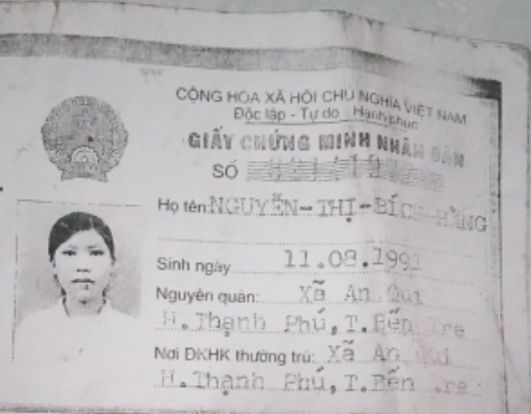 CỘNG HÒA XÃ HỘI CHỦ NGHĨA VIỆT NAM
Độc lập - Tự do - Hạnh phúc
GIẤY CHỨNG MINH NHÂN DÂN
SỐ
Họ tên: NGUYỄN-THỊ-BÍCH-HẰNG
Sinh ngày 11.08.1991
Nguyên quán: Xã An Qui
H.Thạnh Phú, T.Bến Tre
Nơi ĐKHK thường trú: Xã An Qui
H.Thạnh Phú, T.Bến Tre